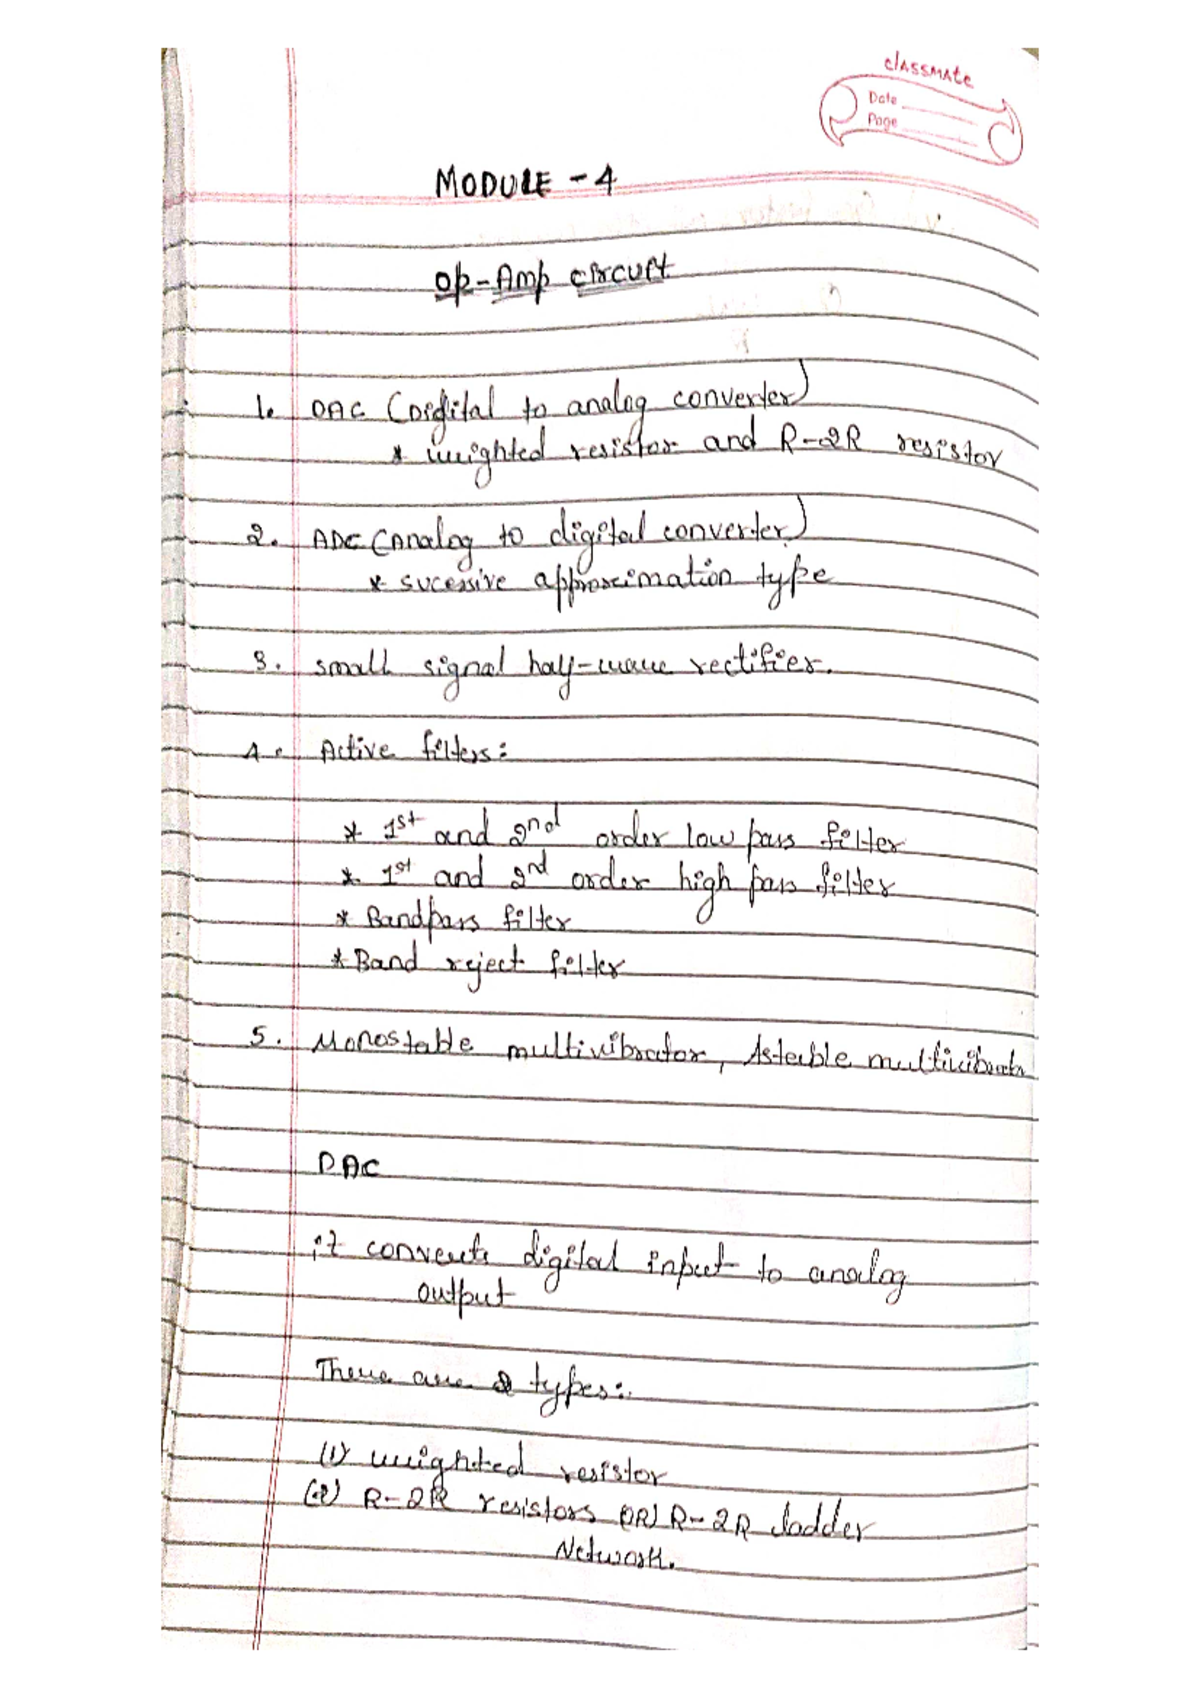 classmate
Date
Page
MODULE - 4
Op-Amp circuit
1. DAC (Digital to analog converter)
* weighted resistor and R-2R resistor
2. ADC (Analog to digital converter)
* sucessive approximation type
3. small signal half-wave rectifier.
4. Active filters:
* 1st and 2nd order low pass filter
* 1st and 2rd order high pass filter
* Bandpass filter
* Band reject filter
5. Monostable multivibrator, Astable multivibrator
DAC
it converts digital input to analog
output
There are 2 types:
(1) weighted resistor
(2) R-2R resistors (OR) R-2R ladder
Network.